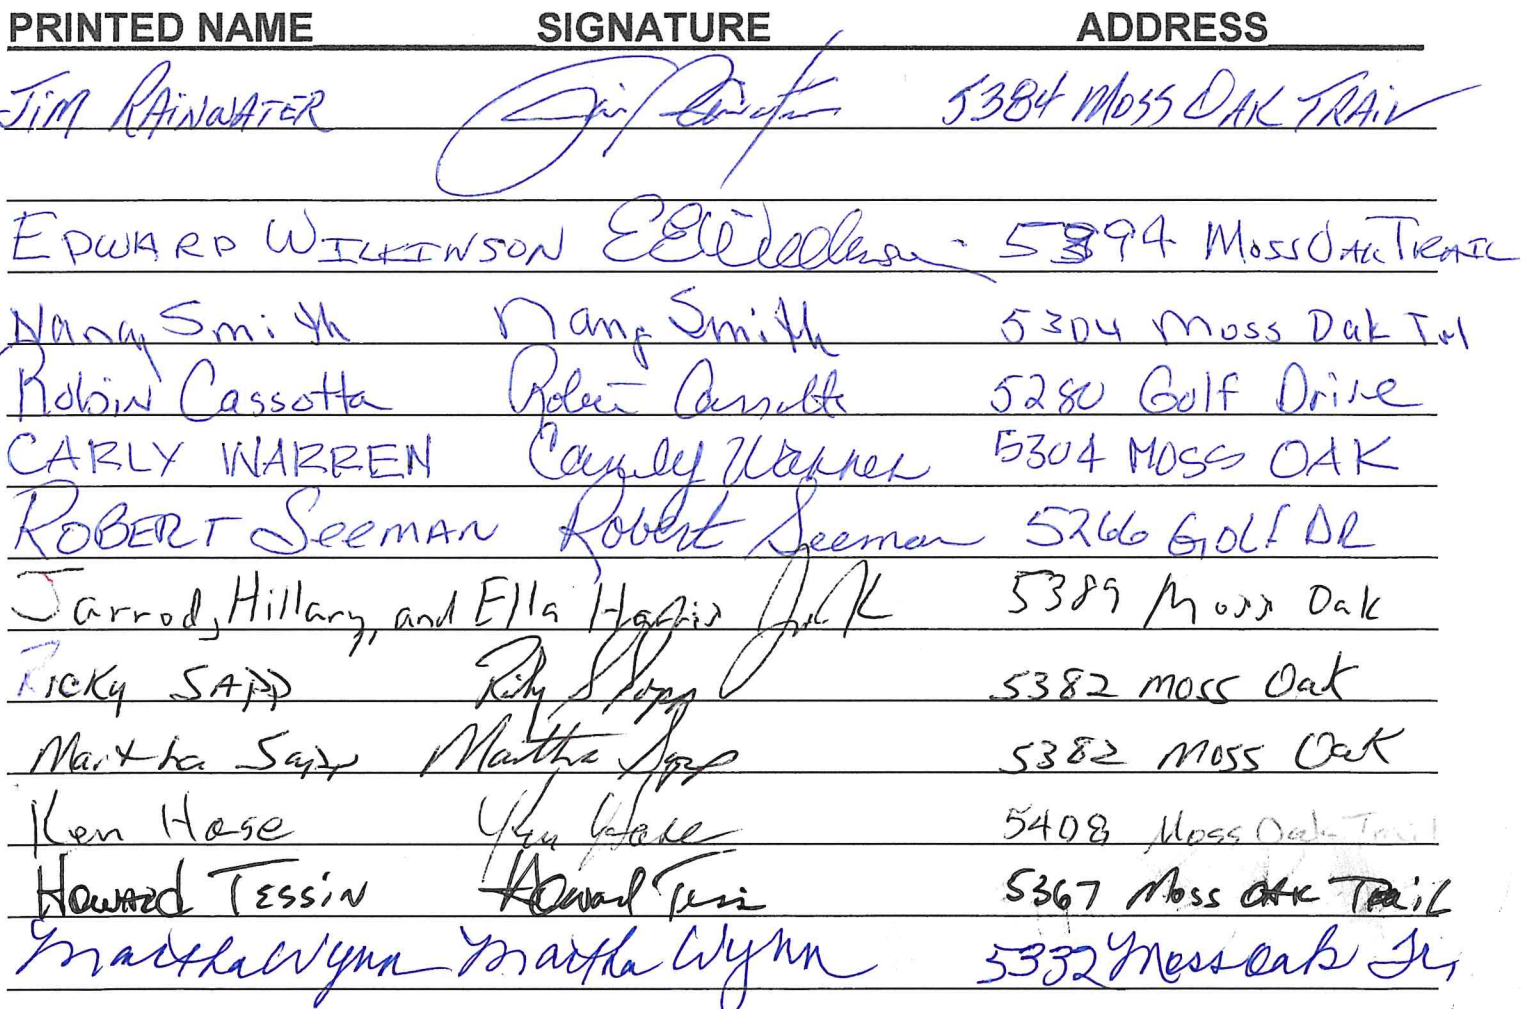 PRINTED NAME SIGNATURE ADDRESS
JIM RAINWATER Jim Rainwater 5384 MOSS OAK TRAIL
EDWARD WILKINSON E E Wilkinson 5394 MOSS OAK TRAIL
Nancy Smith Nancy Smith 5304 Moss Oak Trl
Robin Cassotta Robin Cassotta 5280 Golf Drive
CARLY WARREN Carly Warren 5304 MOSS OAK
ROBERT SEEMAN Robert Seeman 5266 GOLF DR
Jarrod, Hillary, and Ella Harris 5389 Moss Oak
Ricky SAPP Ricky S Sapp 5382 Moss Oak
Martha Sapp Martha Sapp 5382 Moss Oak
Ken Hase Ken Hase 5408 Moss Oak Trail
HOWARD TESSIN Howard Tessin 5367 Moss OAK TRAIL
Martha Wynn Martha Wynn 5332 Moss Oak Tr.